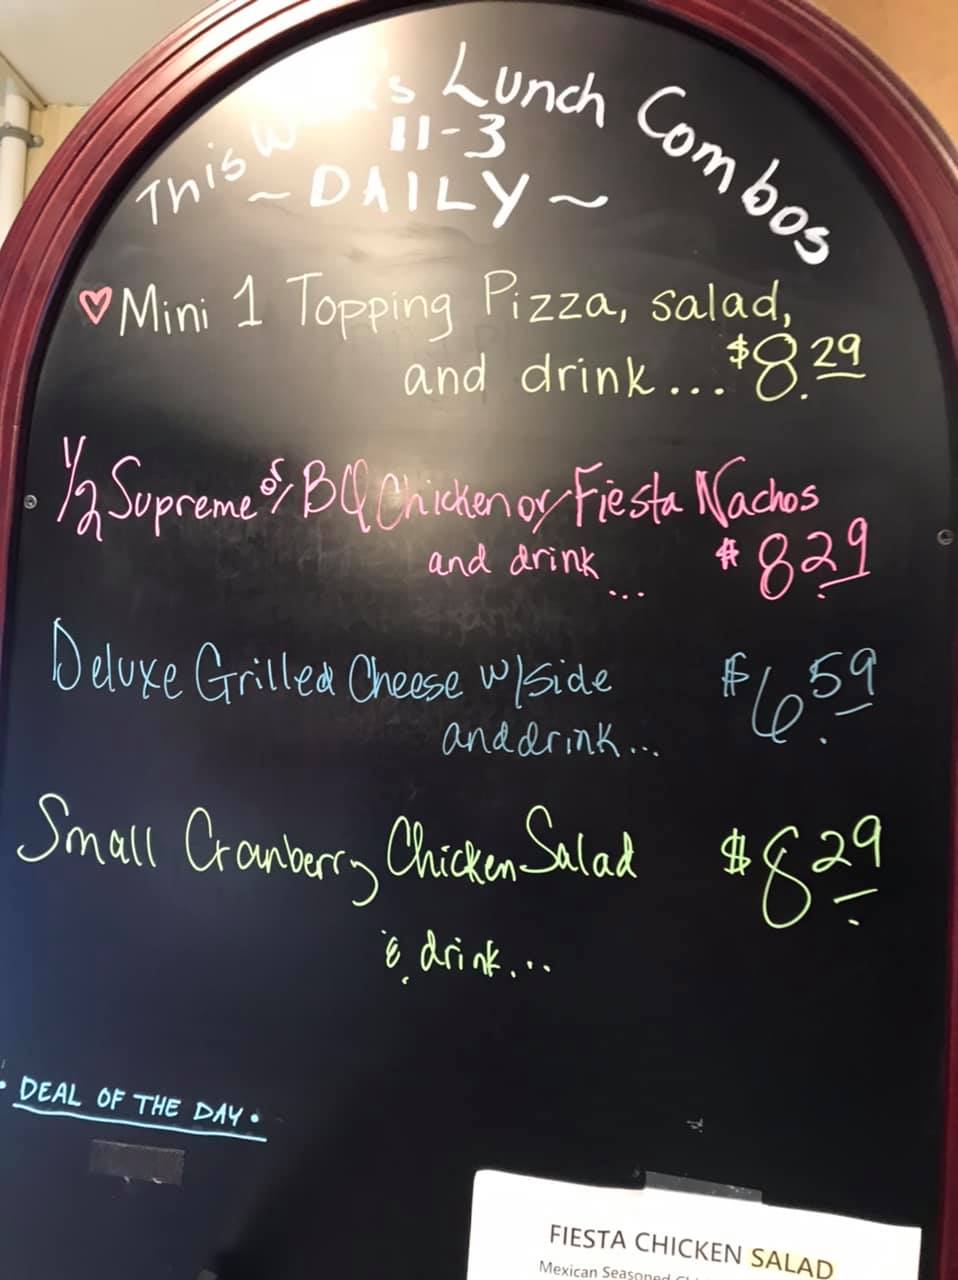 This Lunch Combos
11-3
~ DAILY ~
♡ Mini 1 Topping Pizza, salad,
and drink... $8.29
1/2 Supreme or BQ Chicken or Fiesta Nachos
and drink ... $8.29
Deluxe Grilled Cheese w/side $6.59
and drink...
Small Cranberry Chicken Salad $8.29
& drink...
• DEAL OF THE DAY •
FIESTA CHICKEN SALAD
Mexican Seasoned